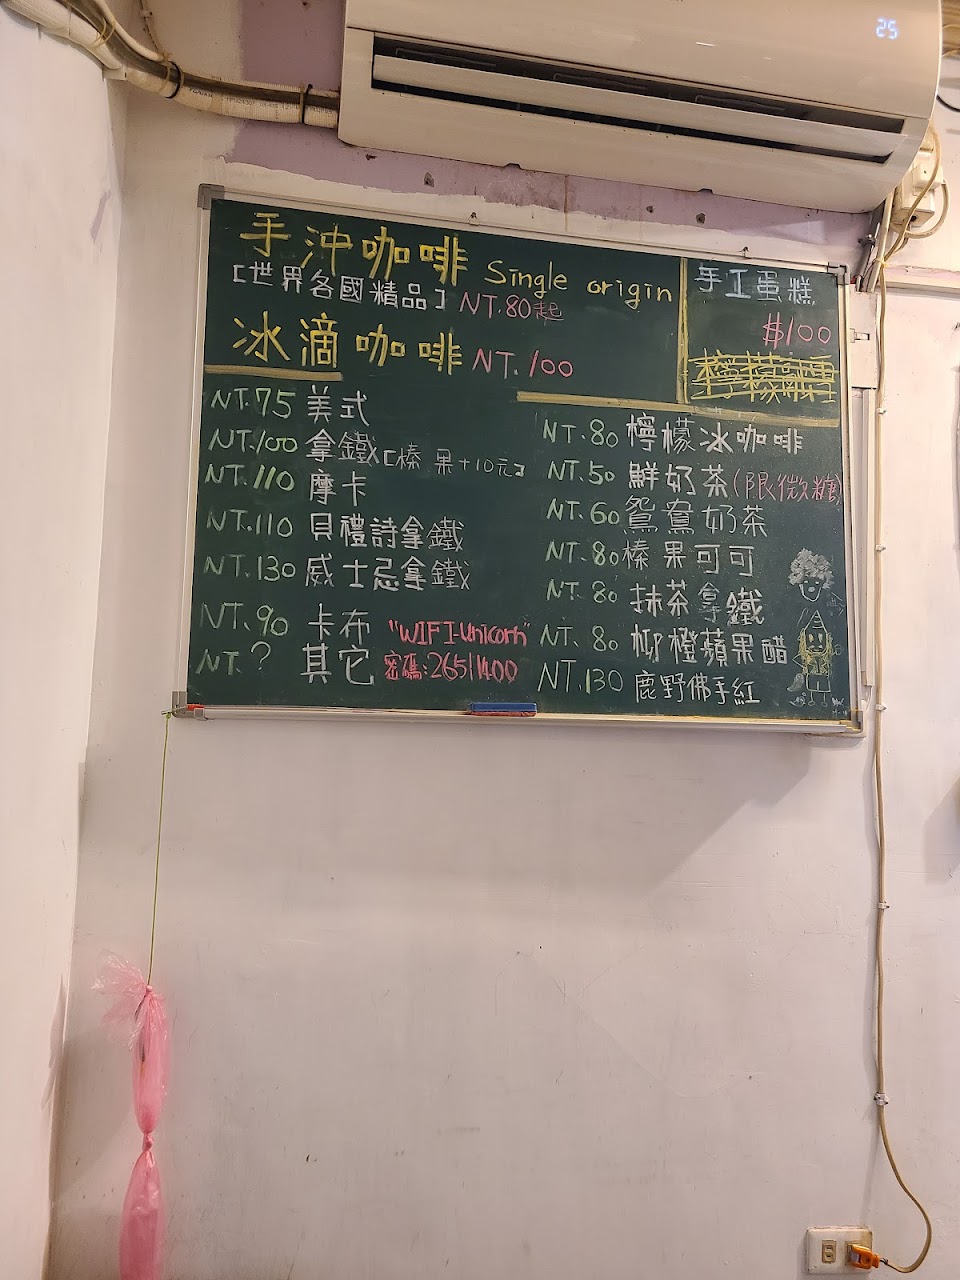 25
手沖咖啡 Single origin
[世界各國精品] NT.80起
冰滴咖啡 NT.100
手工蛋糕
$100
NT.75 美式
NT.100 拿鐵[榛果+10元]
NT.110 摩卡
NT.110 貝禮詩拿鐵
NT.130 威士忌拿鐵
NT.90 卡布
NT.? 其它
"WIFI-Unicorn"
密碼:26511400
NT.80 檸檬冰咖啡
NT.50 鮮奶茶(限微糖)
NT.60 鴛鴦奶茶
NT.80 榛果可可
NT.80 抹茶拿鐵
NT.80 柳橙蘋果醋
NT.130 鹿野佛手紅